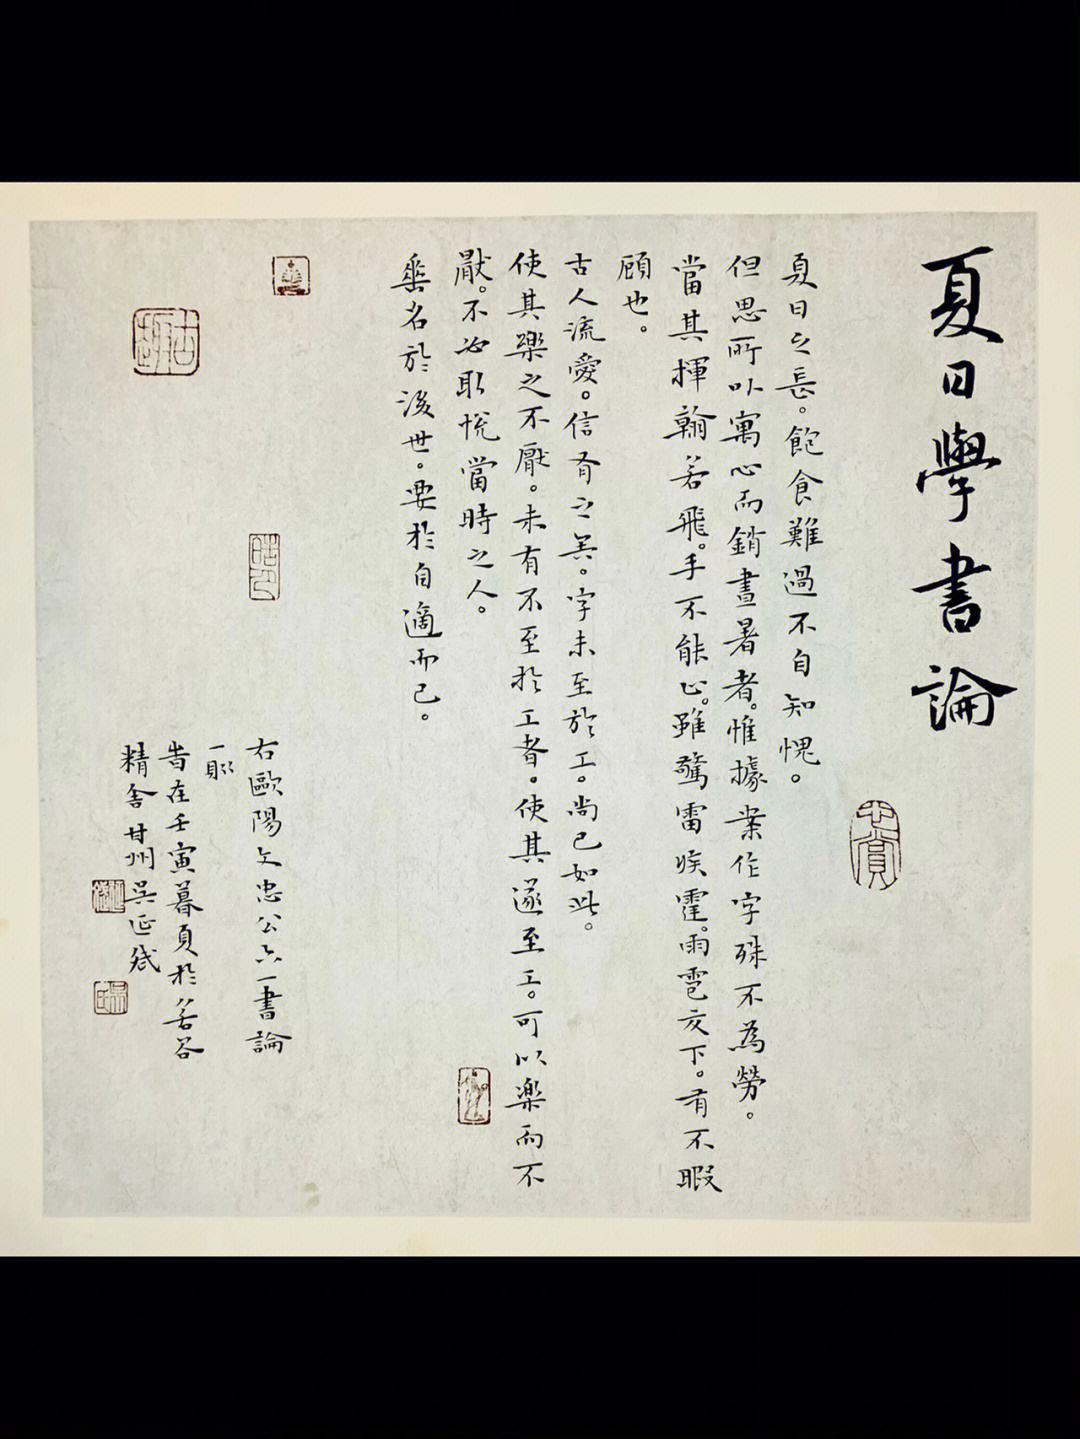 夏日學書論
夏日之長。飽食難過不自知愧。
但思所以寓心而銷晝暑者。惟據案作字殊不為勞。
當其揮翰若飛。手不能止。雖驚雷疾霆。雨雹交下。有不暇
顧也。
古人流愛。信有之矣。字未至於工。尚已如此。
使其樂之不厭。未有不至於工者。使其遂至工。可以樂而不
厭。不必取悅當時之人。
垂名於後世。要於自適而已。
右歐陽文忠公六一書論
一則
昔在壬寅暮夏於若谷
精舍甘州吳延斌